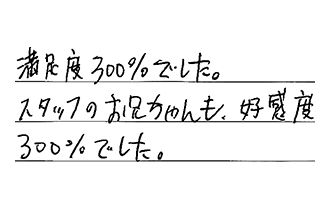 満足度300%でした。
スタッフのお兄ちゃんも、好感度
300%でした。